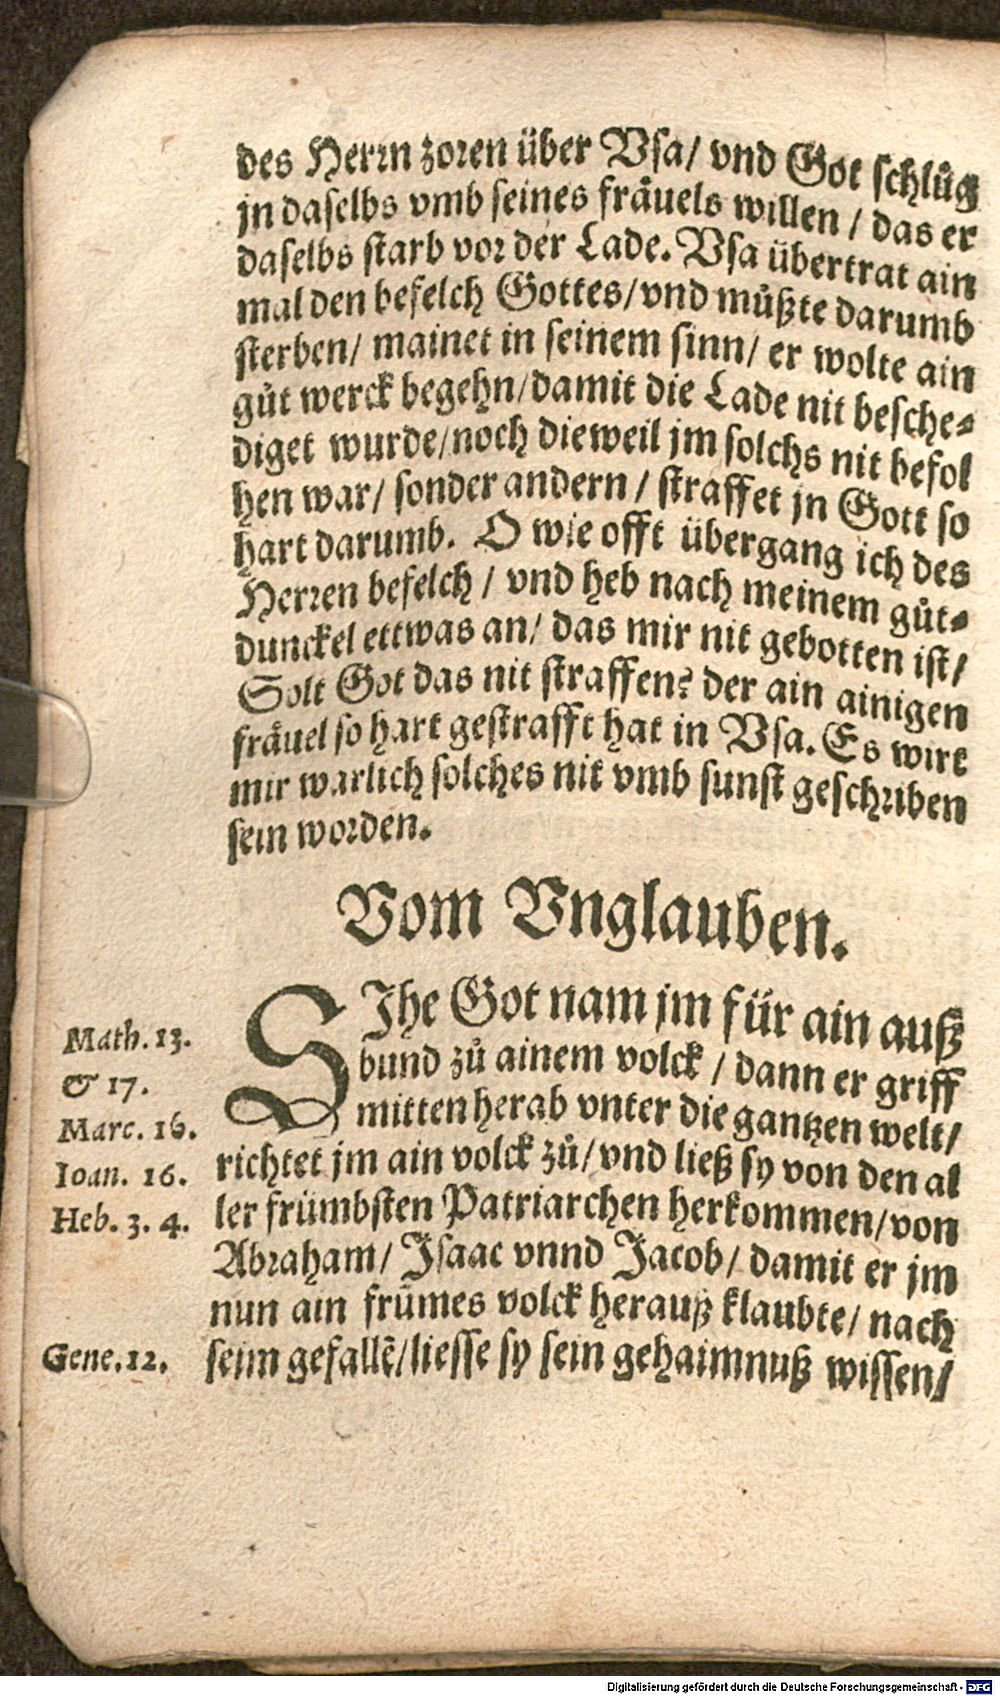 des Herꝛn zoꝛen über Vsa/ vnd Got schlůg
jn daselbs vmb seines fraͤuels willen / das er
daselbs starb voꝛ der Lade. Vsa übertrat ain
mal den befelch Gottes/vnd muͤßte darumb
sterben/ mainet in seinem sinn/ er wolte ain
gůt werck begehn/damit die Lade nit besche⸗
diget wurde/noch dieweil jm solchs nit befol
hen war/ sonder andern / straffet jn Gott so
hart darumb. O wie offt übergang ich des
Herꝛen befelch / vnd heb nach meinem gůt⸗
dunckel ettwas an/ das mir nit gebotten ist/
Solt Got das nit straffen? der ain ainigen
fraͤuel so hart gestrafft hat in Vsa. Es wirt
mir warlich solches nit vmb sunst geschꝛiben
sein woꝛden.
Vom Vnglauben.
SIhe Got nam jm für ain auß
bund zů ainem volck / dann er griff
mitten herab vnter die gantzen welt/
richtet jm ain volck zů/vnd ließ sy von den al
ler frümbsten Patriarchen herkommen/von
Abꝛaham/ Isaac vnnd Jacob/ damit er jm
nun ain frümes volck herauß klaubte/ nach
seim gefallē/liesse sy sein gehaimnuß wissen/
Math. 13.
& 17.
Marc. 16.
Ioan. 16.
Heb. 3. 4.
Gene. 12.
Digitalisierung gefördert durch die Deutsche Forschungsgemeinschaft - DFG